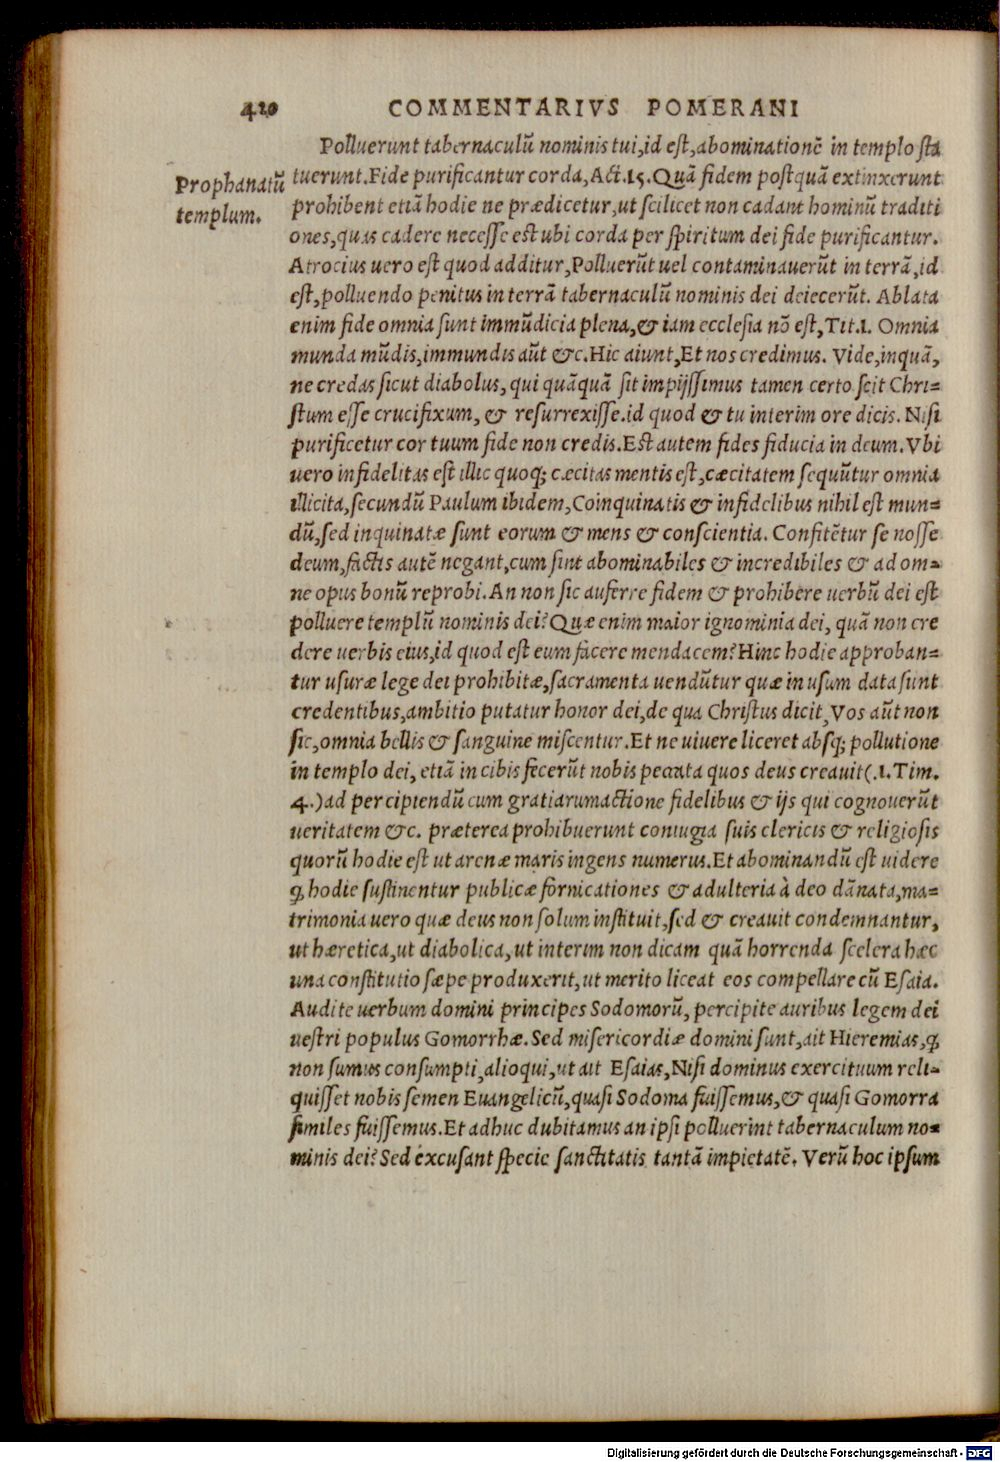 420 COMMENTARIVS POMERANI
Polluerunt tabernaculũ nominis tui, id est, abominationẽ in templo sta
Prophanatũ
templum.
tuerunt. Fide purificantur corda, Act. 15. Quã fidem postquã extinxerunt
prohibent etiã hodie ne prædicetur, ut scilicet non cadant hominũ traditi
ones, quas cadere necesse est ubi corda per spiritum dei fide purificantur.
Atrocius uero est quod additur, Polluerũt uel contaminauerũt in terrã, id
est, polluendo penitus in terrã tabernaculũ nominis dei deiecerũt. Ablata
enim fide omnia sunt immũdicia plena, & iam ecclesia nõ est, Tit. 1. Omnia
munda mũdis, immundis aũt &c. Hic aiunt, Et nos credimus. Vide, inquã,
ne credas sicut diabolus, qui quãquã sit impijssimus tamen certo scit Chri-
stum esse crucifixum, & resurrexisse. id quod & tu interim ore dicis. Nisi
purificetur cor tuum fide non credis. Est autem fides fiducia in deum. Vbi
uero infidelitas est illic quoq; cæcitas mentis est, cæcitatem sequũtur omnia
illicita, secundũ Paulum ibidem, Coinquinatis & infidelibus nihil est mun-
dũ, sed inquinatæ sunt eorum & mens & conscientia. Confitẽtur se nosse
deum, factis autẽ negant, cum sint abominabiles & incredibiles & ad om-
ne opus bonũ reprobi. An non sic auferre fidem & prohibere uerbũ dei est
polluere templũ nominis dei? Quæ enim maior ignominia dei, quã non cre
dere uerbis eius, id quod est eum facere mendacem? Hinc hodie approban-
tur usuræ lege dei prohibitæ, sacramenta uendũtur quæ in usum data sunt
credentibus, ambitio putatur honor dei, de qua Christus dicit, Vos aũt non
sic, omnia bellis & sanguine miscentur. Et ne uiuere liceret absq; pollutione
in templo dei, etiã in cibis fecerũt nobis peccata quos deus creauit (.1. Tim.
4.) ad percipiendũ cum gratiarumactione fidelibus & ijs qui cognouerũt
ueritatem &c. præterea prohibuerunt coniugia suis clericis & religiosis
quorũ hodie est ut arenæ maris ingens numerus. Et abominandũ est uidere
ꝙ hodie sustinentur publicæ fornicationes & adulteria à deo dãnata, ma-
trimonia uero quæ deus non solum instituit, sed & creauit condemnantur,
ut hæretica, ut diabolica, ut interim non dicam quã horrenda scelera hæc
una constitutio sæpe produxerit, ut merito liceat eos compellare cũ Esaia.
Audite uerbum domini principes Sodomorũ, percipite auribus legem dei
uestri populus Gomorrhæ. Sed misericordiæ domini sunt, ait Hieremias, ꝙ
non sumus consumpti, alioqui, ut ait Esaias, Nisi dominus exercituum reli-
quisset nobis semen Euangelicũ, quasi Sodoma fuissemus, & quasi Gomorra
similes fuissemus. Et adhuc dubitamus an ipsi polluerint tabernaculum no-
minis dei? Sed excusant specie sanctitatis tantã impietatẽ. Verũ hoc ipsum
Digitalisierung gefördert durch die Deutsche Forschungsgemeinschaft - DFG